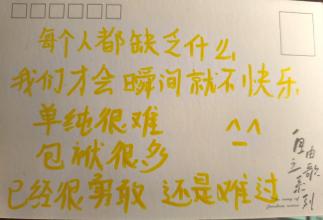 每个人都缺乏什么
我们才会瞬间就不快乐
单纯很难 ^_^
包袱很多
已经很勇敢 还是难过
自由之歌系列